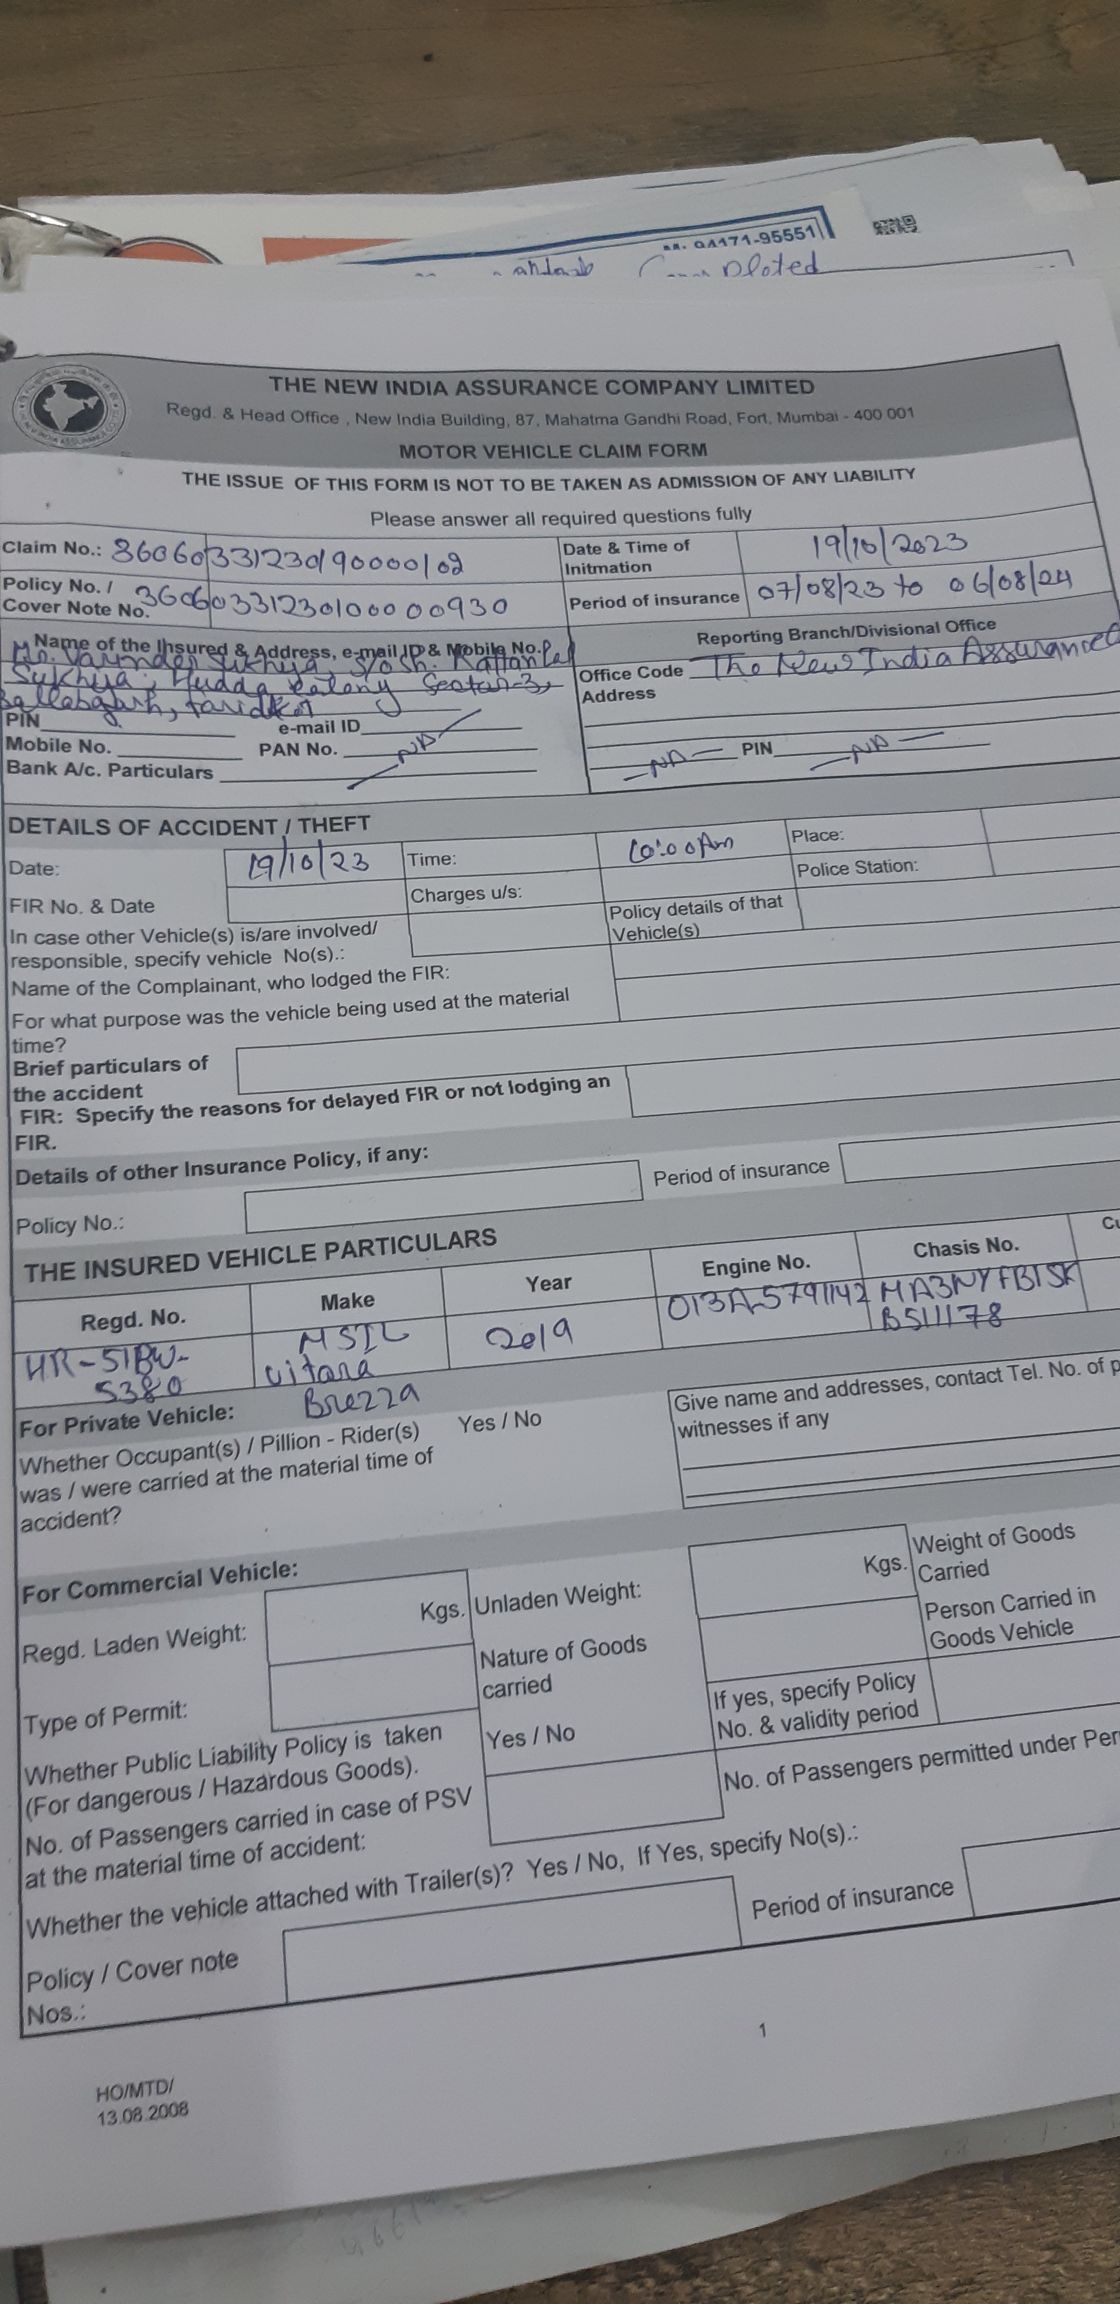 QA171-95551
Completed
THE NEW INDIA ASSURANCE COMPANY LIMITED
Regd. & Head Office , New India Building, 87, Mahatma Gandhi Road, Fort, Mumbai - 400 001
MOTOR VEHICLE CLAIM FORM
THE ISSUE OF THIS FORM IS NOT TO BE TAKEN AS ADMISSION OF ANY LIABILITY
Please answer all required questions fully
Claim No.: 36060331230190000102
Date & Time of Initmation 19/10/2023
Policy No. / Cover Note No. 36060331230100000930
Period of insurance 07/08/23 to 06/08/24
Name of the Insured & Address, e-mail ID & Mobile No.
Mr. Varinder Sukhija S/o Sh. Rattan Lal
Sukhija, Hudda Colony Sector-3,
Ballabgarh,
PIN
e-mail ID
Mobile No.
PAN No. -NA-
Bank A/c. Particulars
Reporting Branch/Divisional Office
Office Code The New India Assurance
Address
-NA- PIN -NA-
DETAILS OF ACCIDENT / THEFT
Date: 19/10/23 Time: 10:00Am Place:
FIR No. & Date Charges u/s: Police Station:
In case other Vehicle(s) is/are involved/
responsible, specify vehicle No(s).:
Policy details of that
Vehicle(s)
Name of the Complainant, who lodged the FIR:
For what purpose was the vehicle being used at the material
time?
Brief particulars of
the accident
FIR: Specify the reasons for delayed FIR or not lodging an
FIR.
Details of other Insurance Policy, if any:
Policy No.: Period of insurance
THE INSURED VEHICLE PARTICULARS
Regd. No. Make Year Engine No. Chasis No. Cu
HR-51BW- MSIL 2019 D13A-5791142 MA3NYFB1SK
5380 Vitara B511178
Brezza
For Private Vehicle:
Whether Occupant(s) / Pillion - Rider(s) Yes / No
was / were carried at the material time of
accident?
Give name and addresses, contact Tel. No. of p
witnesses if any
For Commercial Vehicle:
Regd. Laden Weight: Kgs. Unladen Weight: Kgs. Weight of Goods
Carried
Type of Permit: Nature of Goods
carried
Person Carried in
Goods Vehicle
Whether Public Liability Policy is taken Yes / No
(For dangerous / Hazardous Goods).
If yes, specify Policy
No. & validity period
No. of Passengers carried in case of PSV
at the material time of accident:
No. of Passengers permitted under Per
Whether the vehicle attached with Trailer(s)? Yes / No, If Yes, specify No(s).:
Policy / Cover note
Nos.:
Period of insurance
1
HO/MTD/
13.08.2008